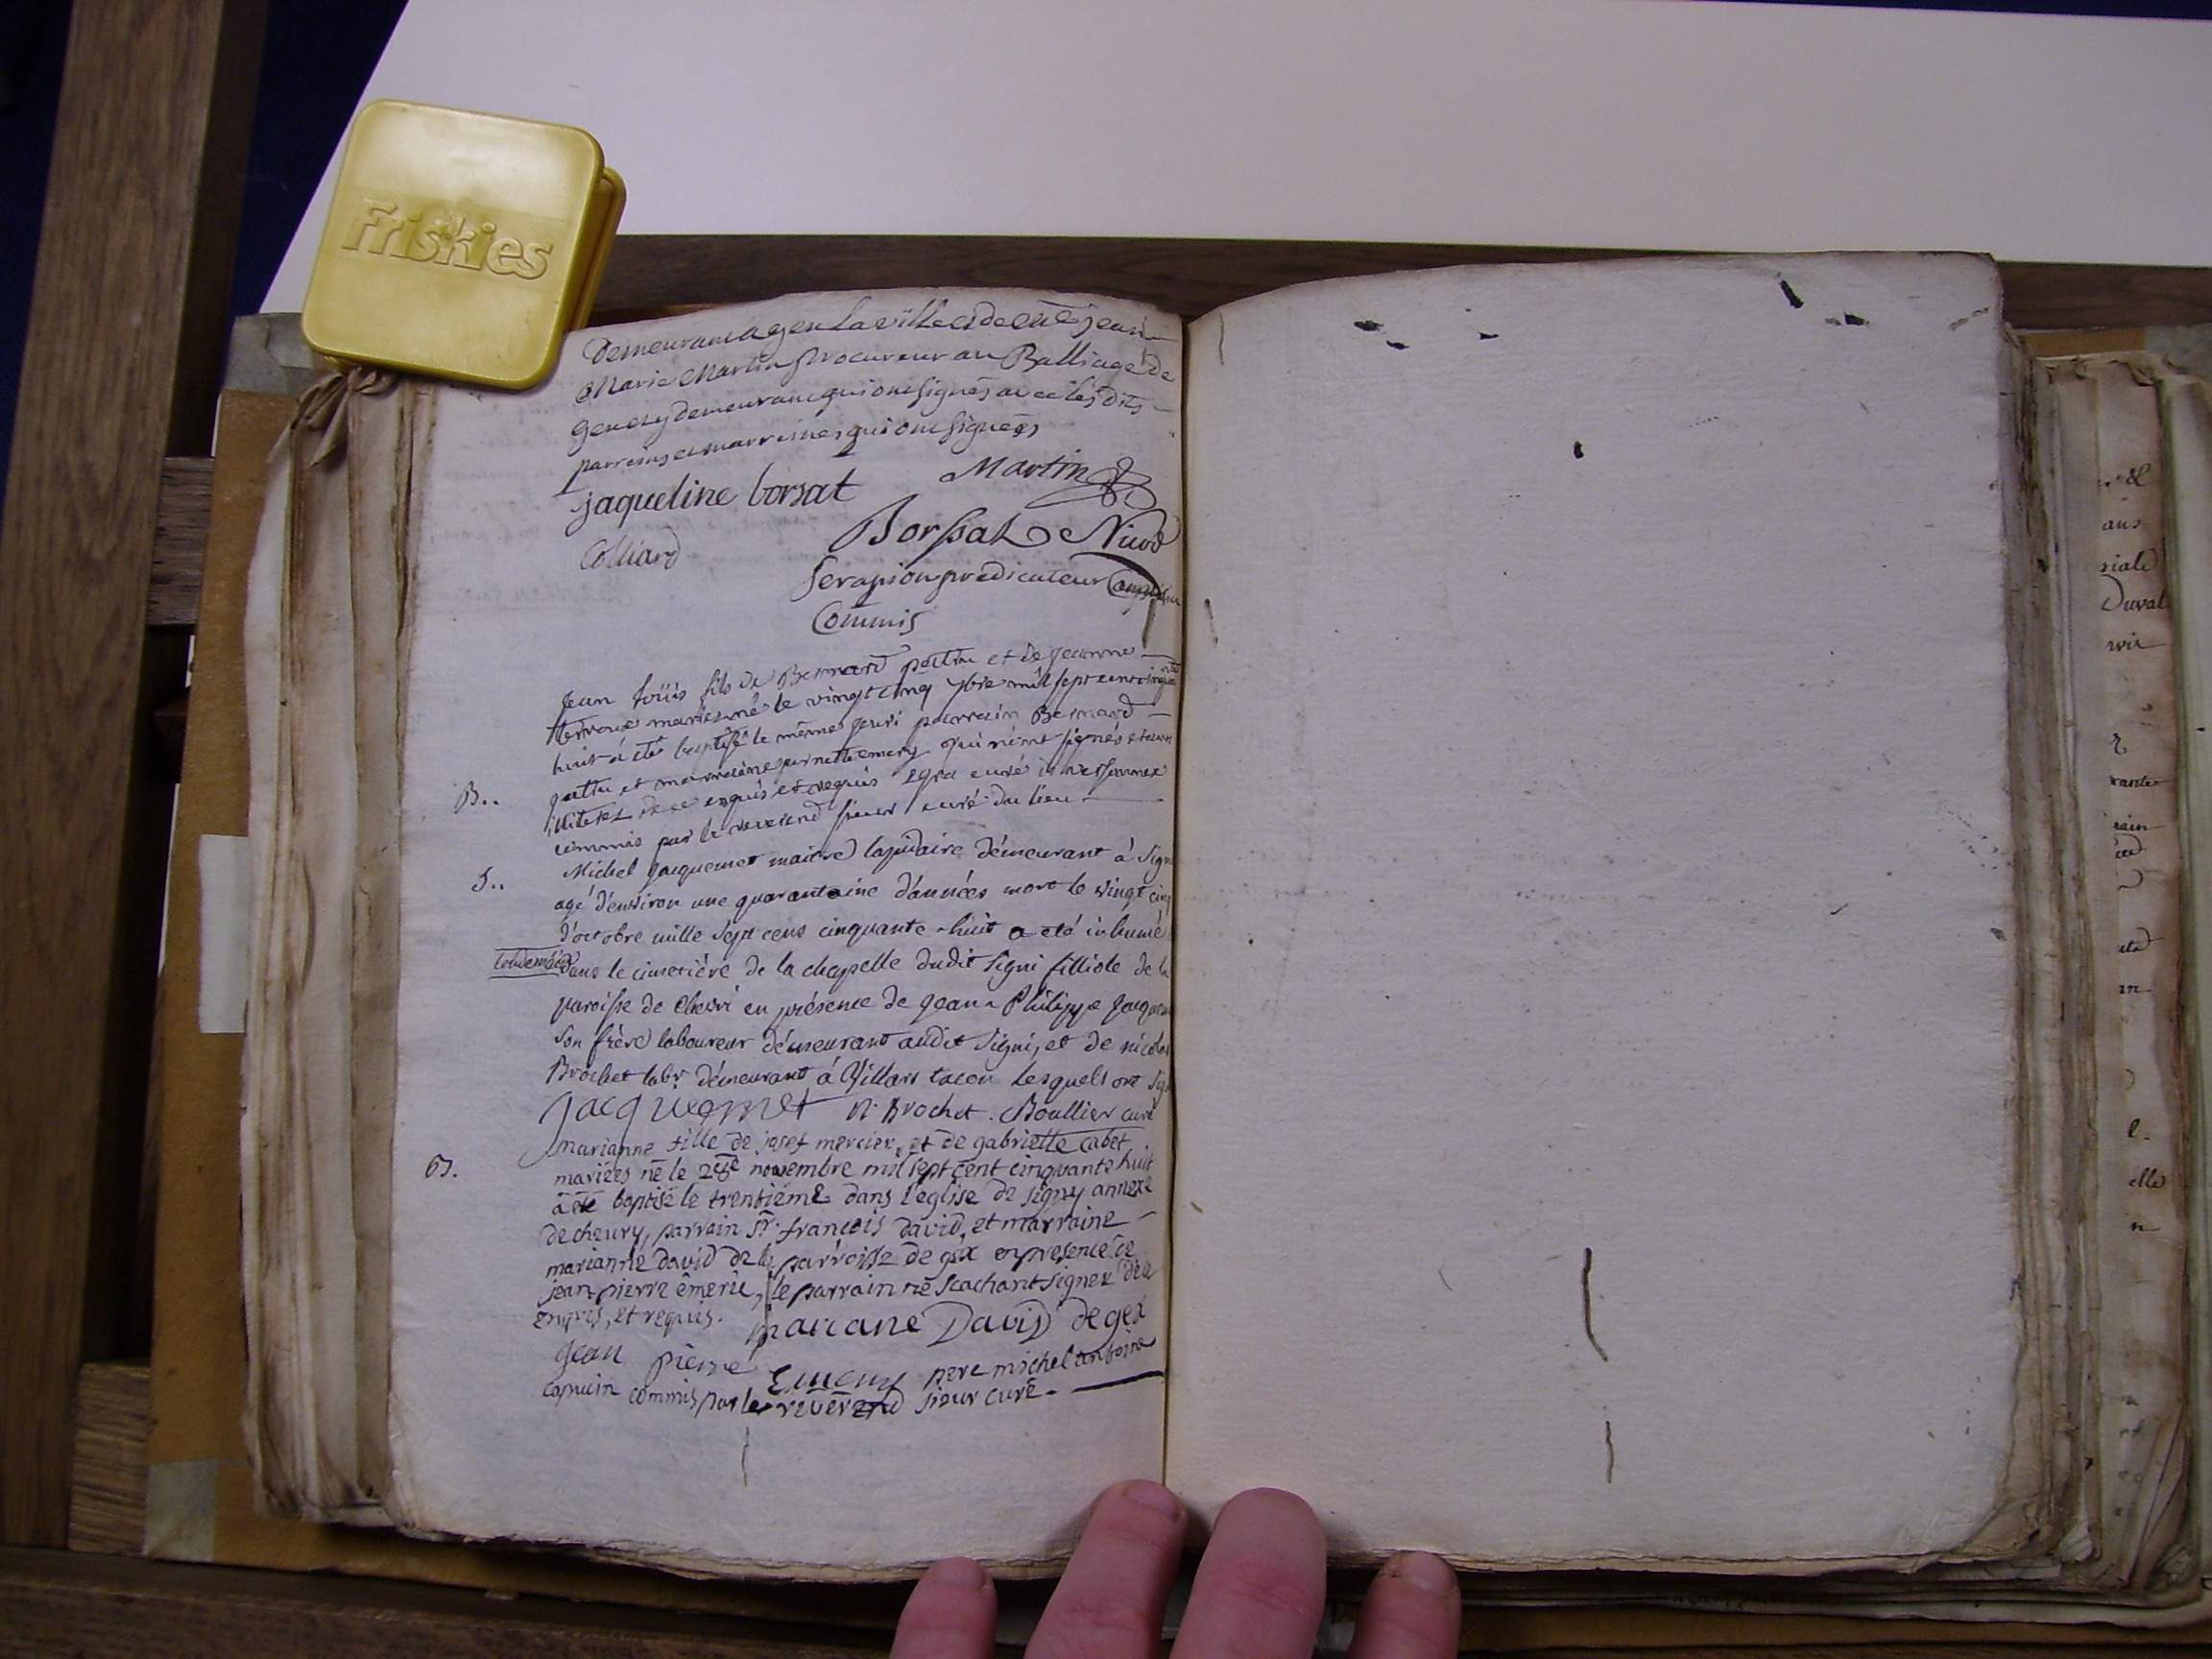 Friskies
Demeurant a gex la ville et de Me jean
Marie Martin procureur au Balliage de
Gex et y demeurant qui ont signés avec les dits
parreins et marreines qui ont signées
Martin
jaqueline borsat
Borssat Nicod
Colliard
Serapion predicateur Capucin
Commis
Jean loüis fils de Bernard et de Jeanne
mariés né le vingt cinq 7bre mil sept cent cinquante
huit a été baptisé le même jour parrain Bernard
et marraine pernette emery qui n'ont signés
illiteres de ce enquis et requis curé
B..
commis par le reverend sieur curé du lieu
Michel Jacquemet maitre lapidaire démeurant à Signi
S..
agé d'environ une quarantaine d'années mort le vingt cinq
d'octobre mille sept cens cinquante-huit a eté inhumé
lendemain
dans le cimetière de la chapelle dudit Signi filliole de la
paroisse de Chevri en présence de Jean Philippe Jacquem
son frère laboureur démeurant audit Signi, et de nicolas
Brochet labr démeurant à Villars tacon lesquels ont sig
Jacquemet n. Brochet. Boullier curé
marianne fille de josef mercier, et de gabrielle cabet
B.
mariées né le novembre mil sept cent cinquante huit
a été baptisé le trentiéme dans l'eglise de signy annexe
de cheury, parrain sr. francois david, et marraine
marianne david de la parroisse de gex en presence de
jean pierre émerie, le parrain ne scachant signer de ce
enquis, et requis. mariane David de gex
Jean pierre Emery pere michel antoine
capucin commis par le reverend sieur curé.
ans
riale
Duval
rante
rain
elle